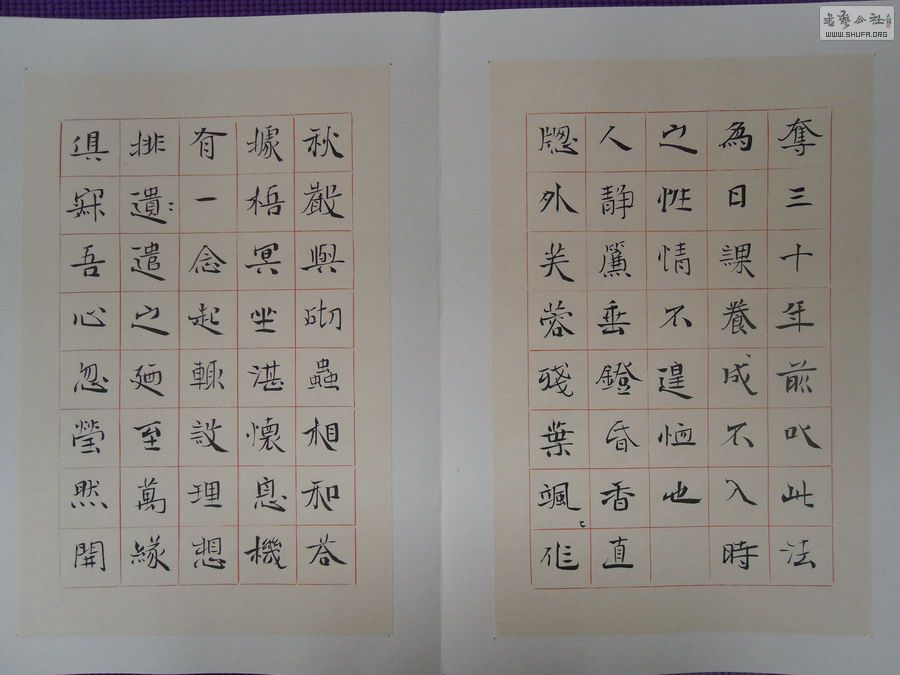 奪三十年前以此法
為日課養成不入時
之性情不遑恤也
人靜簾垂鐙昏香直
牕外芙蓉殘葉颯々作
秋聲與砌蟲相和荅
據梧冥坐湛懷息機
有一念起輒設理想
排遺遣之廼至萬緣
俱寂吾心忽瑩然開
書藝公社
WWW.SHUFA.ORG